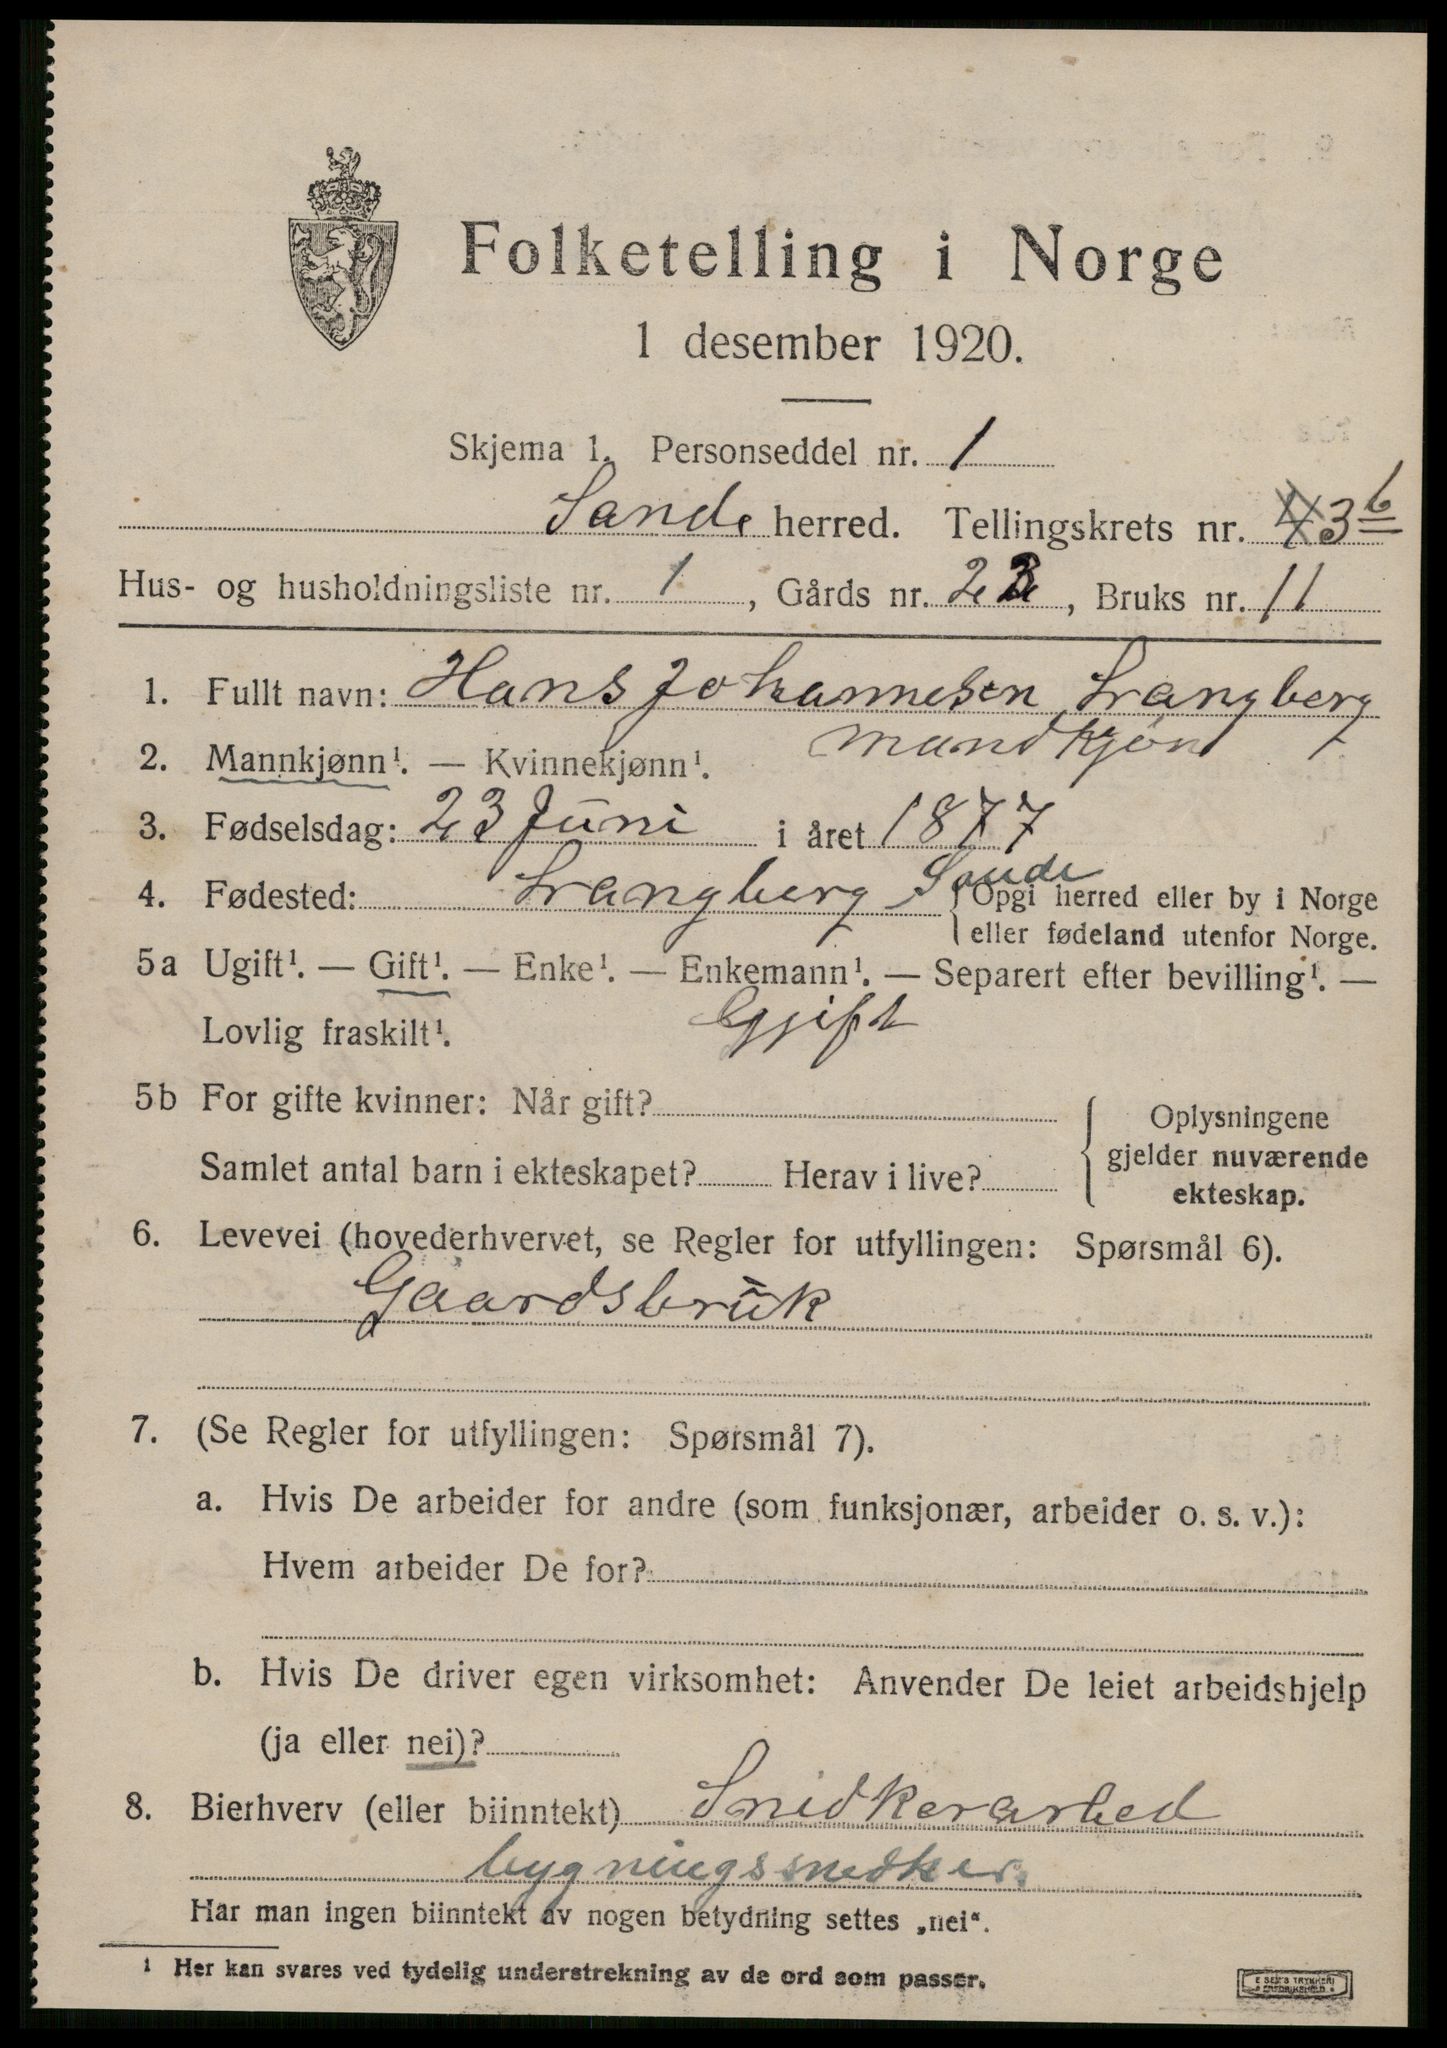 Folketelling i Norge
1 desember 1920.
Skjema 1. Personseddel nr. 1
Sande herred. Tellingskrets nr. 3 b
Hus- og husholdningsliste nr. 1, Gårds nr. 2, Bruks nr. 11
1. Fullt navn: Hans Johannesen Trangberg
2. Mannkjønn¹. — Kvinnekjønn¹. mandkjøn
3. Fødselsdag: 23 Juni i året 1877
4. Fødested: Trangberg Sande {Opgi herred eller by i Norge
eller fødeland utenfor Norge.
5a Ugift¹. — Gift¹. — Enke¹. — Enkemann¹. — Separert efter bevilling¹. —
Lovlig fraskilt¹. Gjift
5b For gifte kvinner: Når gift?
Samlet antal barn i ekteskapet? Herav i live?
Oplysningene
gjelder nuværende
ekteskap.
6. Levevei (hovederhvervet, se Regler for utfyllingen: Spørsmål 6).
Gaardsbruk
7. (Se Regler for utfyllingen: Spørsmål 7).
a. Hvis De arbeider for andre (som funksjonær, arbeider o. s. v.):
Hvem arbeider De for?
b. Hvis De driver egen virksomhet: Anvender De leiet arbeidshjelp
(ja eller nei)?
8. Bierhverv (eller biinntekt) Snidkerarbed
bygningssnedker.
Har man ingen biinntekt av nogen betydning settes „nei“.
¹ Her kan svares ved tydelig understrekning av de ord som passer.
E SEM'S TRYKKERI
FREDRIKSHALD